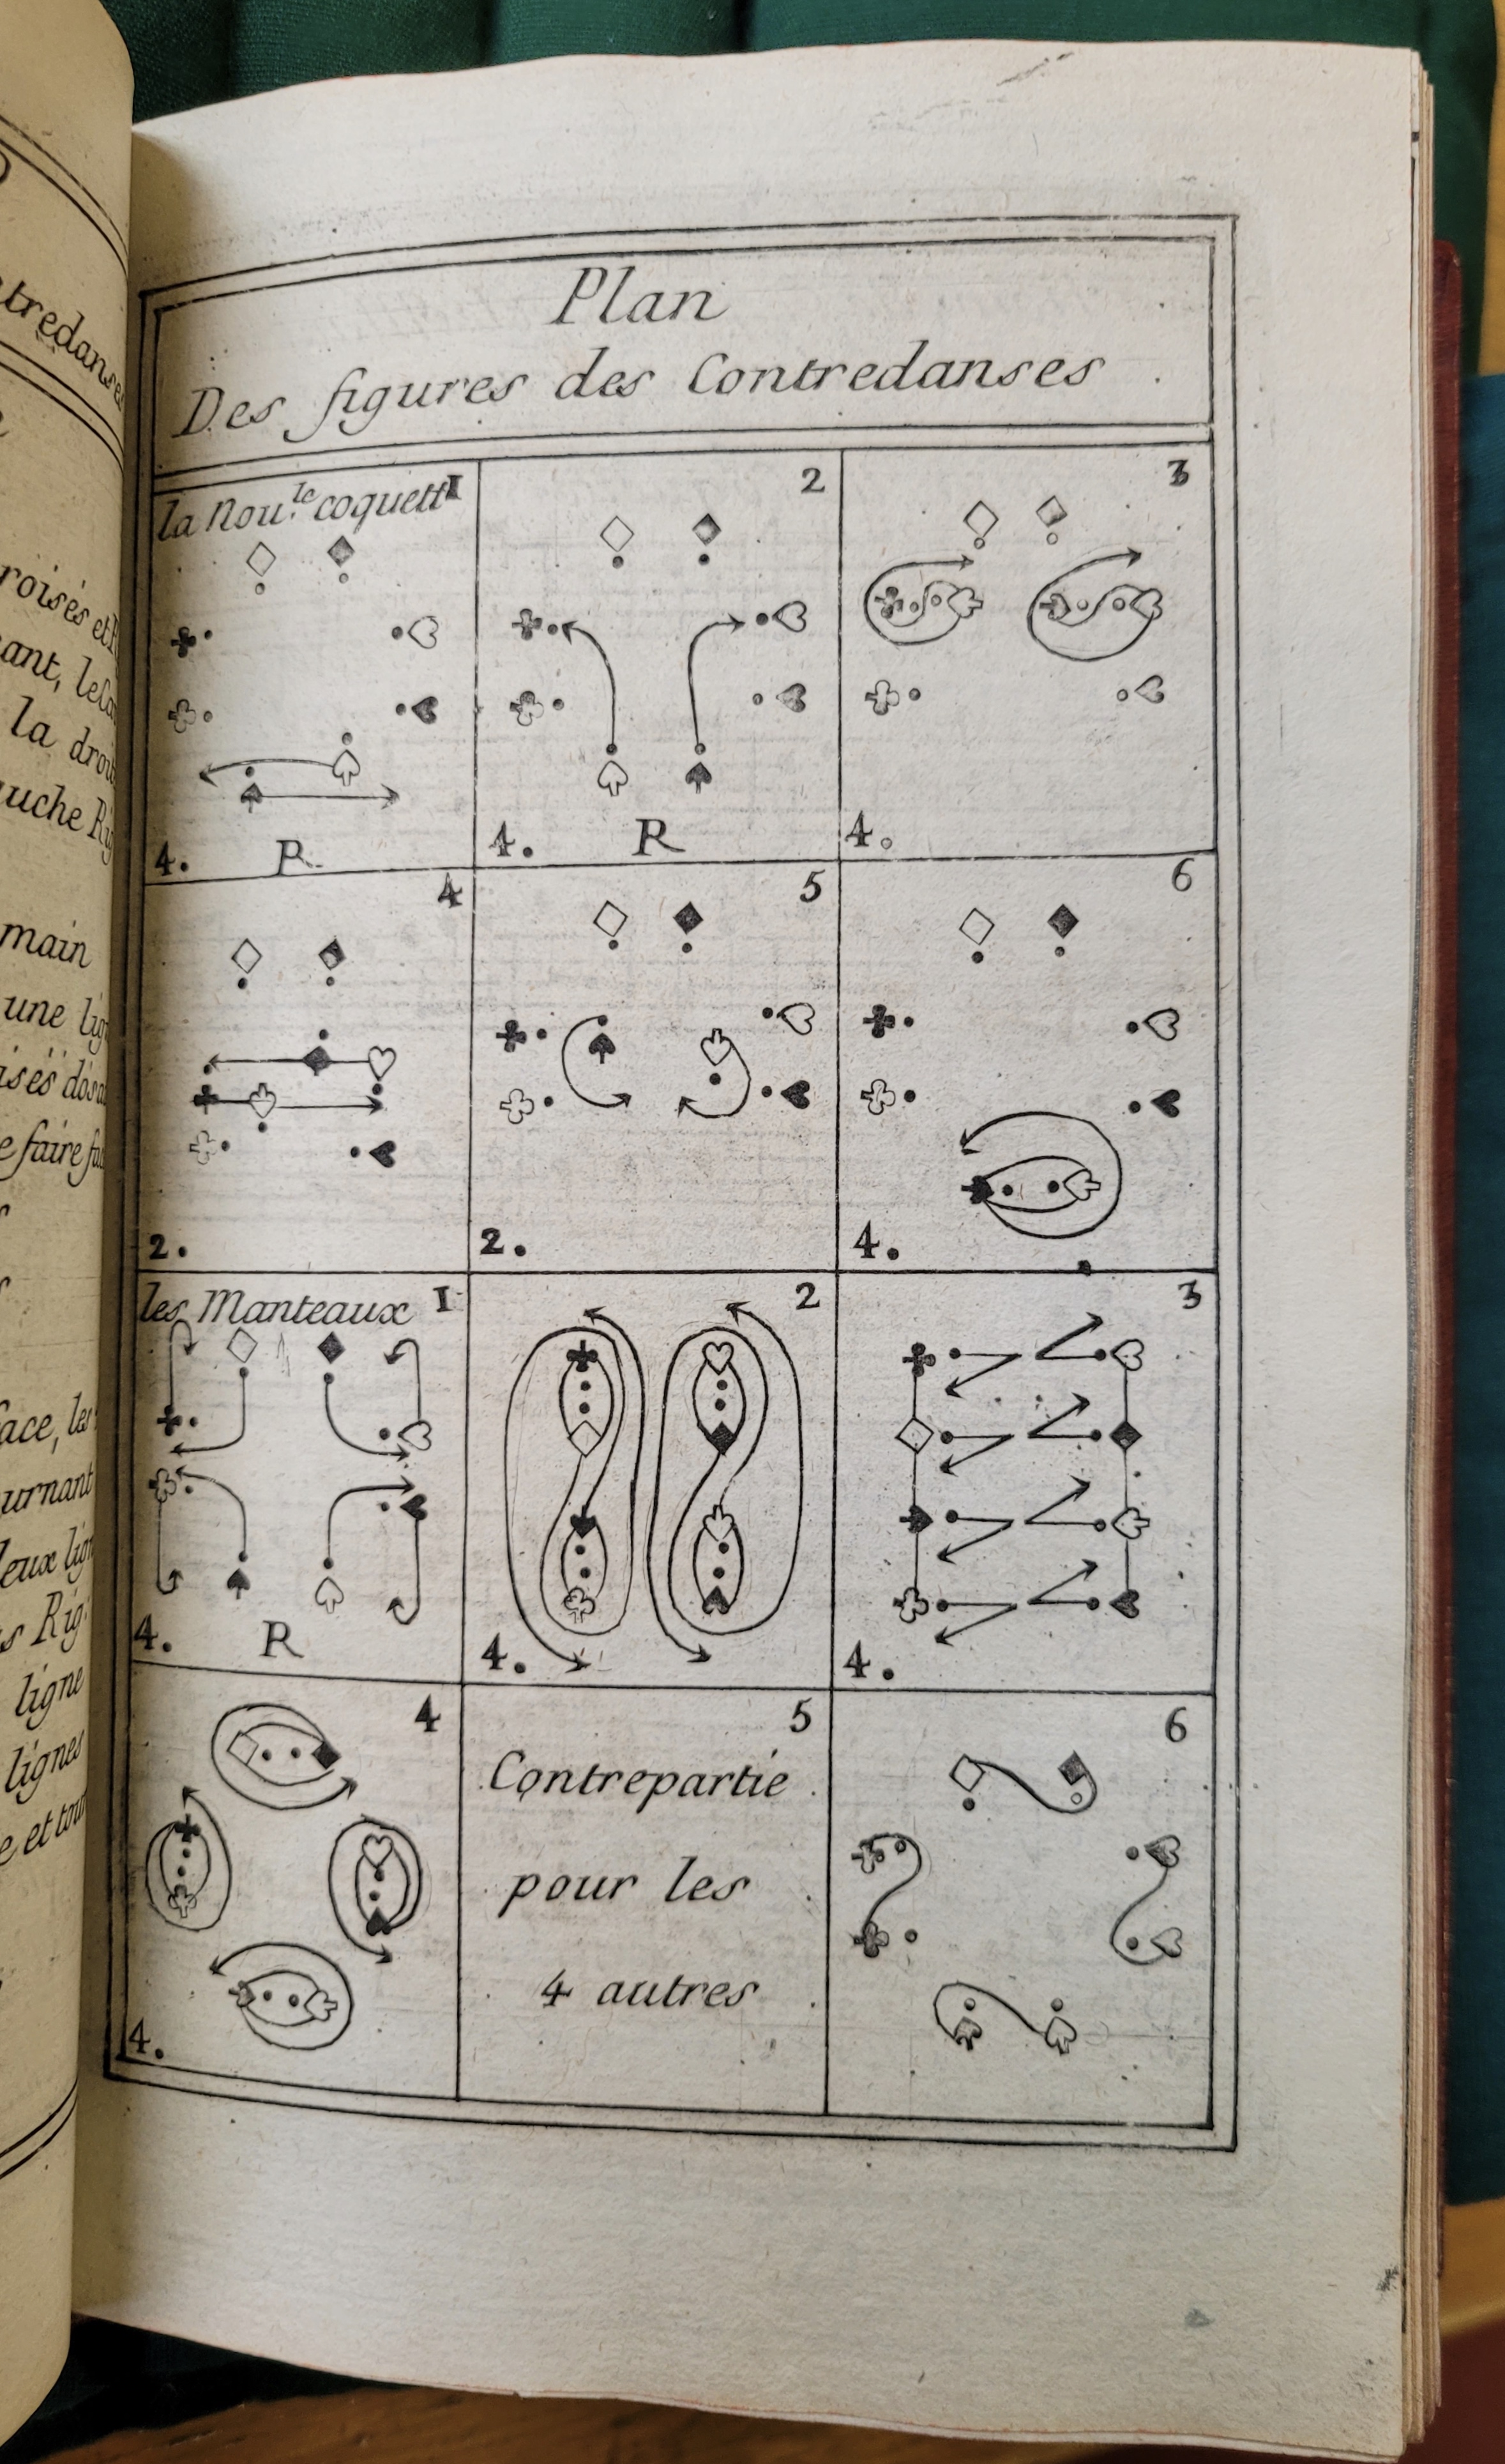 tredanse
roisés et
ant, le
la
main
une
e faire
ace, les
urnant
s Rig
ligne
lignes
e et tout
Plan
Des figures des Contredanses
la Nou.le coquett 1
4. R
2
4. R
3
4.
4
2.
5
2.
6
4.
les Manteaux 1
4. R
2
4.
3
4.
4
4.
5
Contrepartie
pour les
4 autres
6